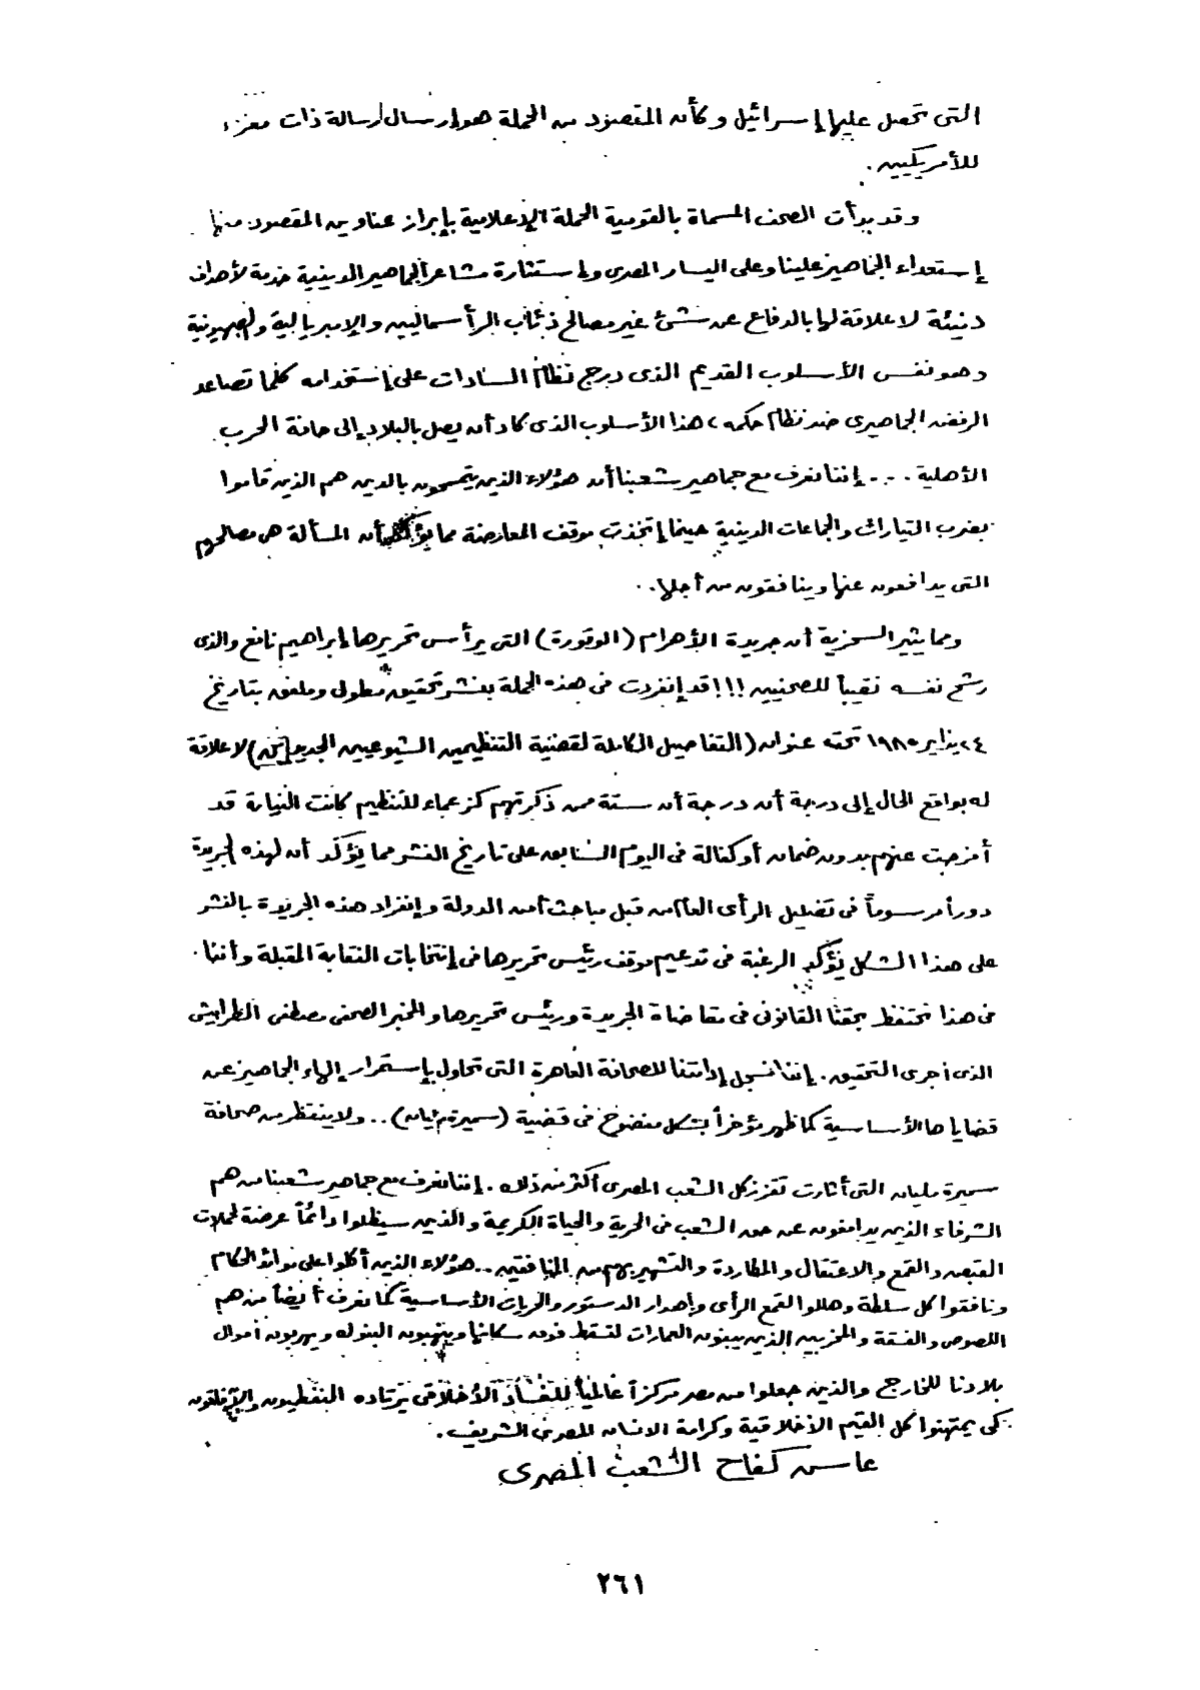 التى تحصل عليها إسرائيل وكأن المقصود من الحملة هو إرسال رسالة ذات مغزى
للأمريكيين .
وقد بدأت الصحف المسماة بالقومية الحملة الإعلامية بإبراز عناوين المقصود منها
إستعداء الجماهير علينا وعلى اليسار المصرى وإستثارة مشاعر الجماهير الدينية خدمة لأهداف
دنيئة لا علاقة لها بالدفاع عن شئ غير مصالح ذئاب الرأسماليين والإمبريالية والصهيونية
وهو نفس الأسلوب القديم الذى درج نظام السادات على إستخدامه كلما تصاعد
الرفض الجماهيرى ضد نظام حكمه ، هذا الأسلوب الذى كاد أن يصل بالبلاد إلى حافة الحرب
الأهلية .... إننا نعرف مع جماهير شعبنا أن هؤلاء الذين يتمسحون بالدين هم الذين قاموا
بضرب التيارات والجماعات الدينية حينما إتخذت موقف المعارضة مما يؤكد أن المسألة هى مصالحهم
التى يدافعون عنها وينافقون من أجلها . .
ومما يثير السخرية أن جريدة الأهرام (الوقورة) التى يرأس تحريرها إبراهيم نافع والذى
رشح نفسه نقيباً للصحفيين !!! قد إنفردت فى هذه الحملة بنشر تحقيق مطول وملفق بتاريخ
٢٤ يناير ١٩٨٥ تحت عنوان (التفاصيل الكاملة لقضية التنظيمين الشيوعيين الجديدين) لا علاقة
له بواقع الحال إلى درجة أن درجة أن ستة ممن ذكرتهم كزعماء للتنظيم كانت النيابة قد
أفرجت عنهم بدون ضمان أو كفالة فى اليوم السابق على تاريخ النشر مما يؤكد أن لهذه الجريدة
دوراً مرسوماً فى تضليل الرأى العام من قبل مباحث أمن الدولة وإنفراد هذه الجريدة بالنشر
على هذا الشكل يؤكد الرغبة فى تدعيم موقف رئيس تحريرها فى إنتخابات النقابة المقبلة وأننا
فى هذا نحتفظ بحقنا القانونى فى مقاضاة الجريدة ورئيس تحريرها والمخبر الصحفى مصطفى الطرابيشى
الذى أجرى التحقيق . إننا نسجل إدانتنا للصحافة العاهرة التى تحاول بإستمرار إلهاء الجماهير عن
قضاياها الأساسية كما ظهر مؤخراً بشكل مفضوح فى قضية (سميرة مليان) .. ولا ينتظر من صحافة
سميرة مليان التى أثارت تقزز كل الشعب المصرى أكثر من ذلك . إننا نعرف مع جماهير شعبنا من هم
الشرفاء الذين يدافعون عن حق الشعب فى الحرية والحياة الكريمة والذين سيظلوا دائماً عرضة لحملات
القبض والقمع والاعتقال والمطاردة والتشهير بهم من المنافقين .. هؤلاء الذين أكلوا على موائد الحكام
ونافقوا كل سلطة وهللوا لقمع الرأى وإهدار الدستور والحريات الأساسية كما نعرف أيضاً من هم
اللصوص والفسقة والمخربين الذين يبنون العمارات لتسقط فوق سكانها وينهبون البنوك ويهربون أموال
بلادنا للخارج والذين جعلوا من مصر مركزاً عالمياً للفساد الأخلاقى يرتاده النفطيون والآفاقون
كى يمتهنوا كل القيم الأخلاقية وكرامة الانسان المصرى الشريف .
عاش كفاح الشعب المصرى
٢٦١